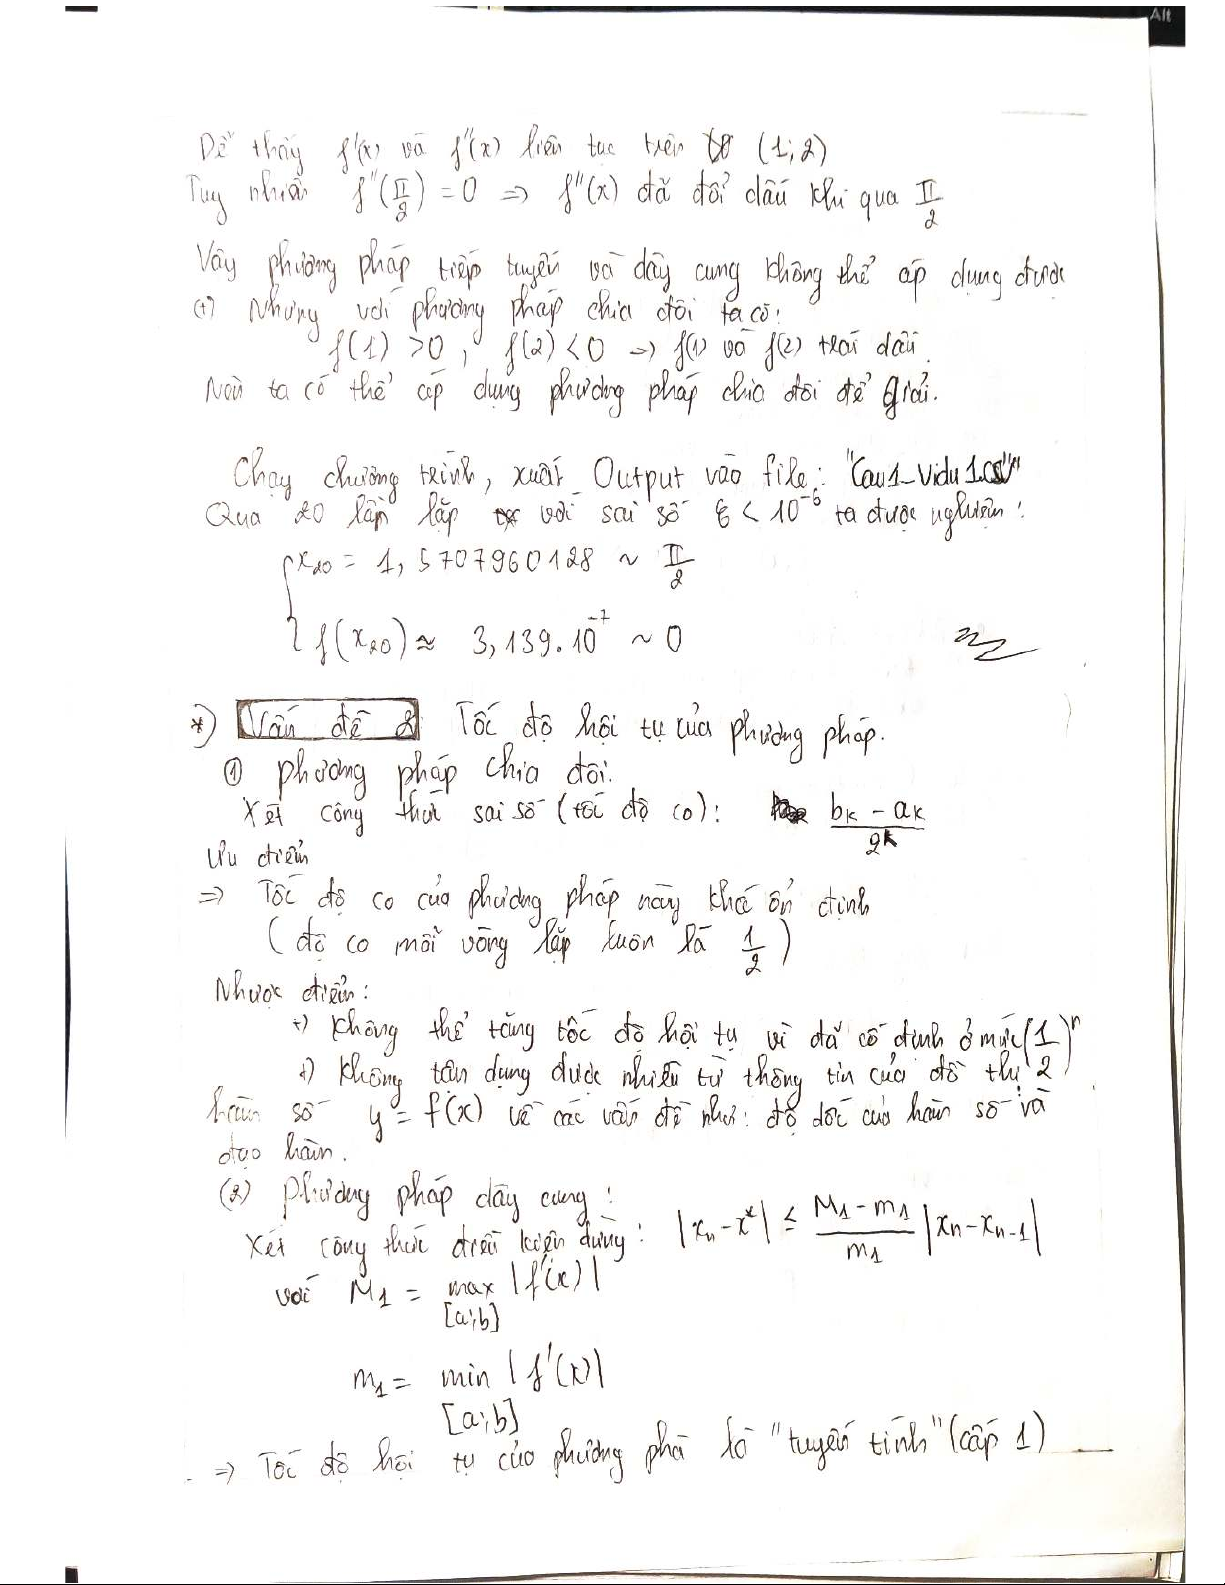 Alt
Dễ thấy f'(x) và f''(x) liên tục trên (1; 2)
Tuy nhiên f''(π/2) = 0 => f''(x) đã đổi dấu khi qua π/2
Vậy phương pháp tiếp tuyến và dây cung không thể áp dụng được
(+) Nhưng với phương pháp chia đôi ta có:
f(1) > 0, f(2) < 0 => f(1) và f(2) trái dấu.
Nên ta có thể áp dụng phương pháp chia đôi để giải.
Chạy chương trình, xuất Output vào file: "Cau1_Vidu1.cs"
Qua 20 lần lặp với sai số ε < 10^-6 ta được nghiệm:
x20 = 1,5707960128 ~ π/2
f(x20) ≈ 3,139.10^-7 ~ 0
*) Vấn đề 8 Tốc độ hội tụ của phương pháp.
① phương pháp chia đôi.
Xét công thức sai số (tốc độ co): (bk - ak)/2^k
Ưu điểm
=> Tốc độ co của phương pháp này khá ổn định
(độ co mỗi vòng lặp luôn là 1/2)
Nhược điểm:
+) Không thể tăng tốc độ hội tụ vì đã cố định ở mức (1/2)^n
+) Không tận dụng được nhiều từ thông tin của đồ thị
hàm số y = f(x) về các vấn đề như: độ dốc của hàm số và
đạo hàm.
(2) Phương pháp dây cung:
Xét công thức điều kiện dừng: |xn - x*| ≤ (M1 - m1)/m1 |xn - xn-1|
với M1 = max |f'(x)|
[a;b]
m1 = min |f'(x)|
[a;b]
=> Tốc độ hội tụ của phương phá là "tuyến tính" (cấp 1)